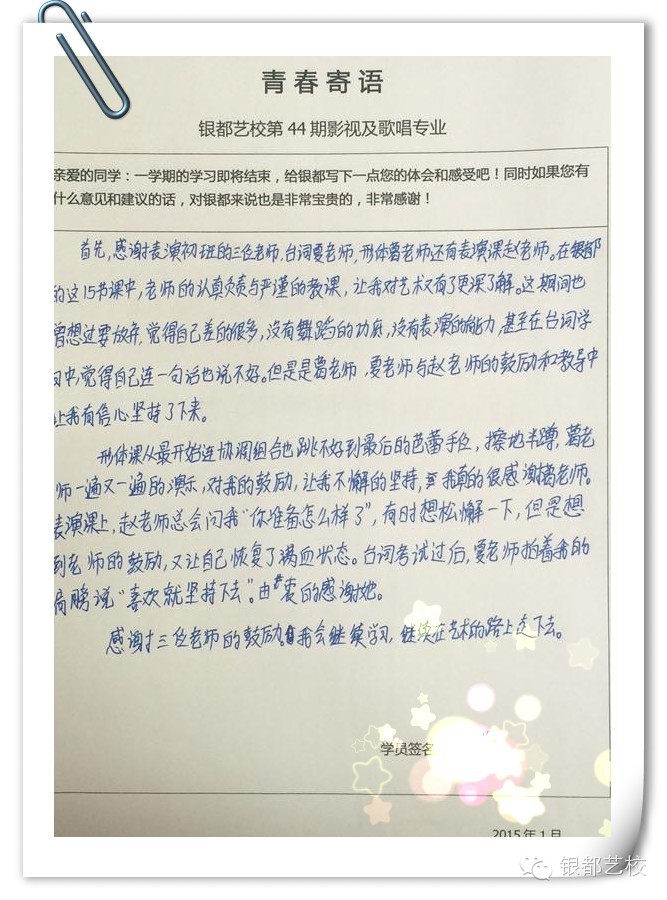 青春寄语
银都艺校第44期影视及歌唱专业
亲爱的同学：一学期的学习即将结束，给银都写下一点您的体会和感受吧！同时如果您有
什么意见和建议的话，对银都来说也是非常宝贵的，非常感谢！
首先，感谢表演初班的三位老师，台词夏老师，形体葛老师还有表演课赵老师。在银都
的这15节课中，老师的认真负责与严谨的教课，让我对艺术又有了更深了解。这期间也
曾想过要放弃，觉得自己差的很多，没有舞蹈的功底，没有表演的能力，甚至在台词学
习中，觉得自己连一句话也说不好。但是是葛老师，夏老师与赵老师的鼓励和教导中
让我有信心坚持了下来。
形体课从最开始连协调组合也跳不好到最后的芭蕾手位，擦地半蹲，葛老
师一遍又一遍的演示，对我的鼓励，让我不懈的坚持，我真的很感谢葛老师。
表演课上，赵老师总会问我“你准备怎么样了”，有时想松懈一下，但是想
到老师的鼓励，又让自己恢复了满血状态。台词考试过后，夏老师拍着我的
肩膀说“喜欢就坚持下去”。由衷的感谢她。
感谢三位老师的鼓励。我会继续学习，继续在艺术的路上走下去。
学员签名
2015年1月
银都艺校